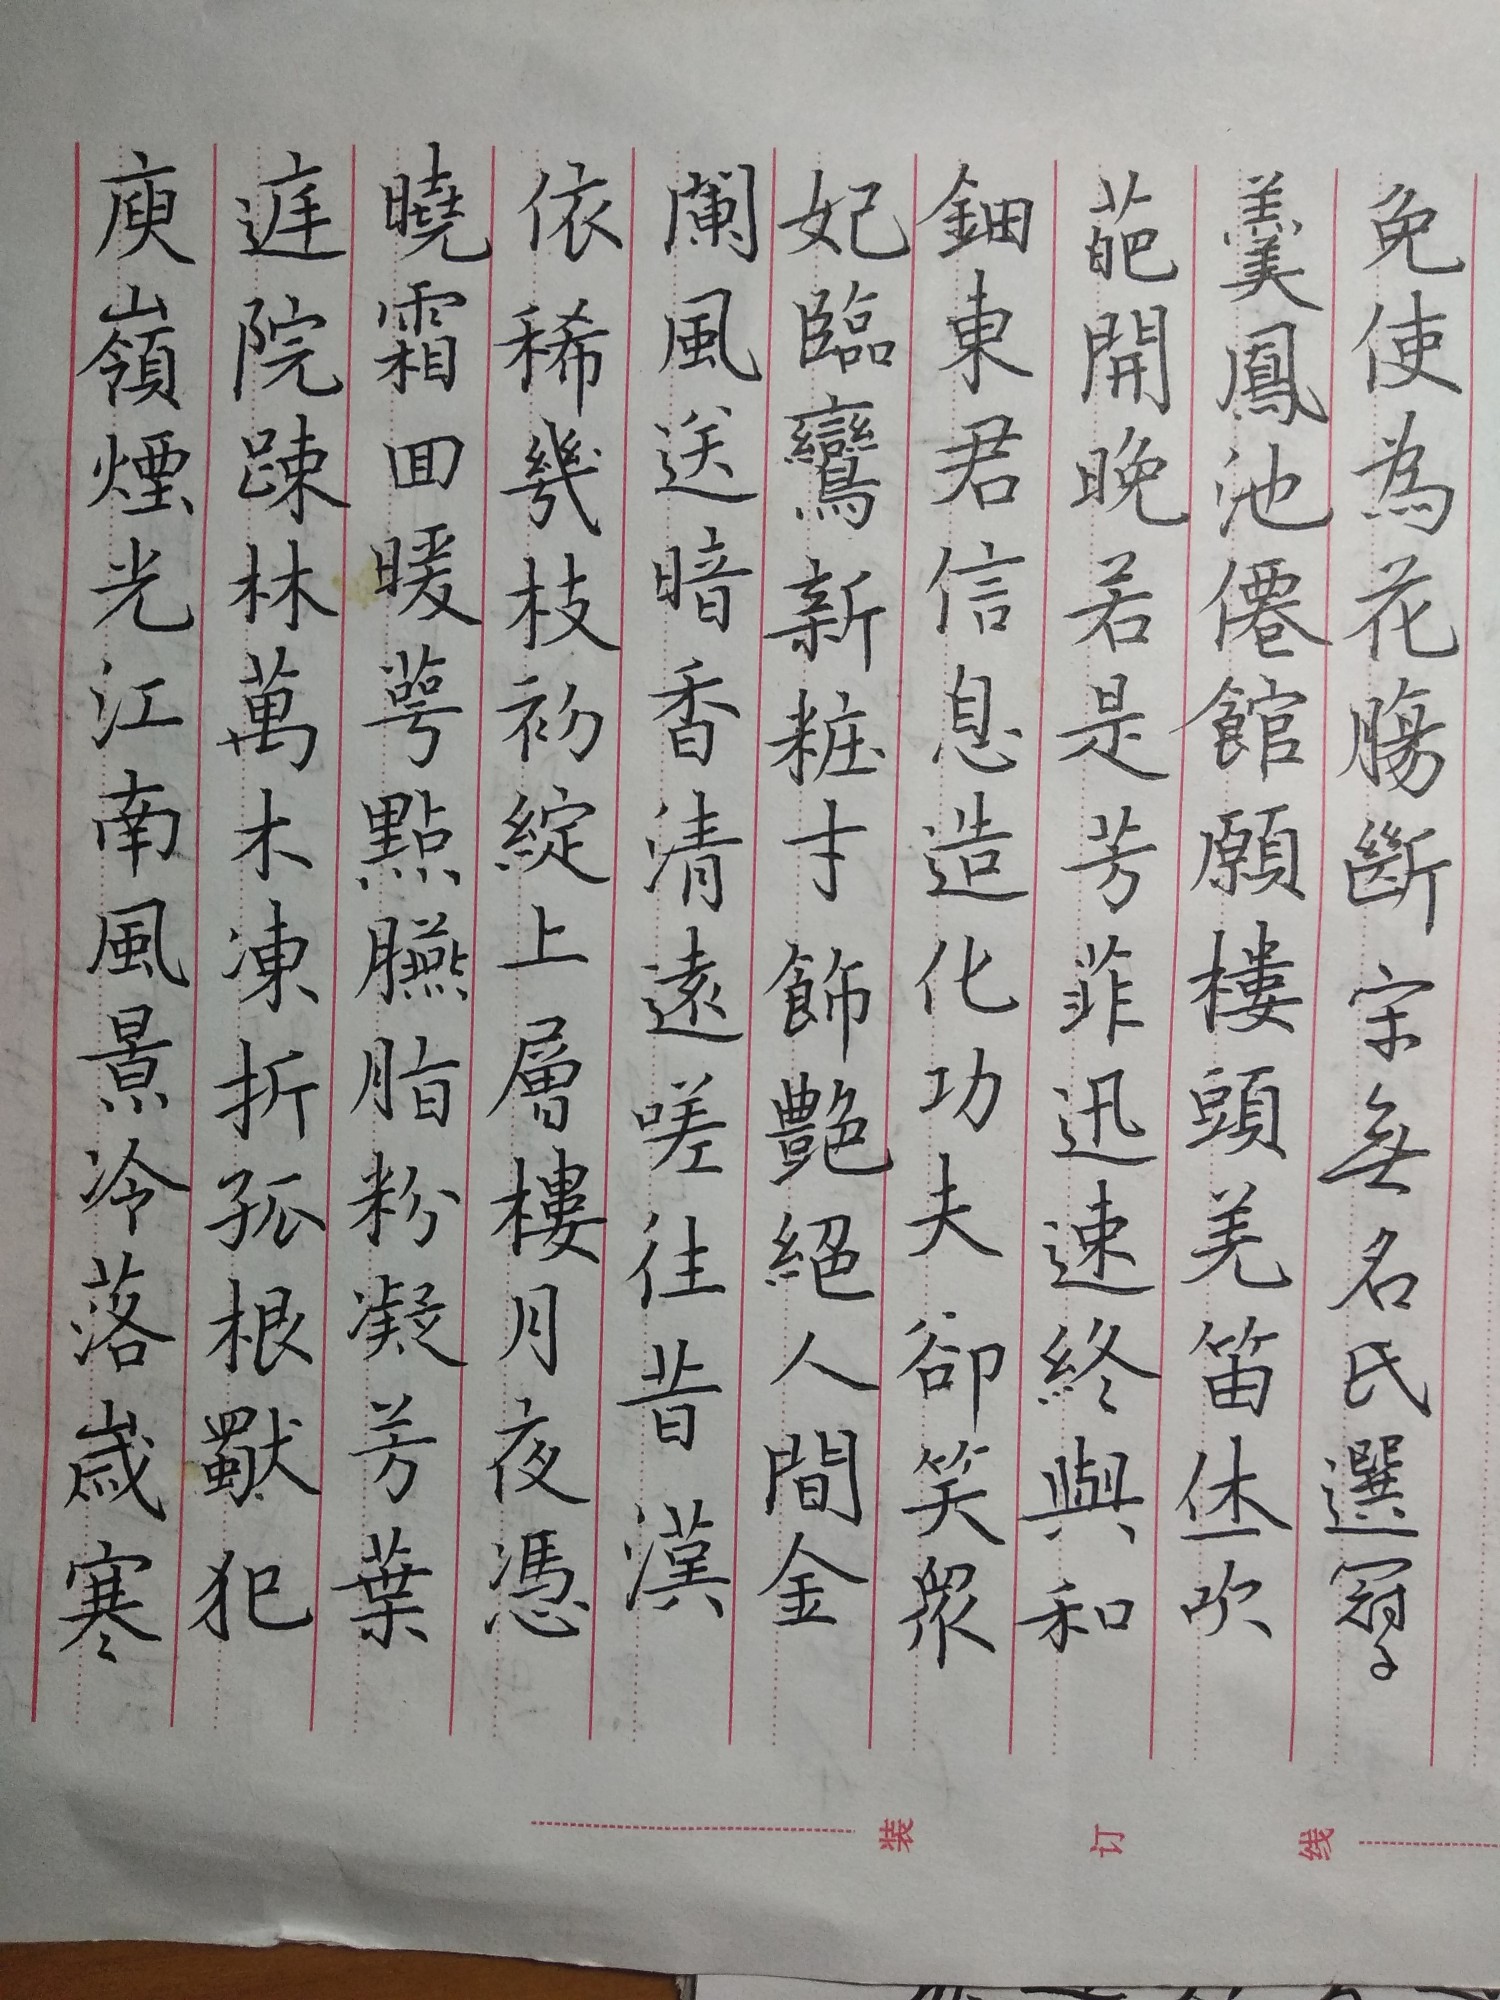 庾嶺煙光江南風景冷落歲寒
庭院疎林萬木凍折孤根獸犯
曉霜回暖萼點臙脂粉凝芳葉
依稀幾枝初綻上層樓月夜憑
闌風送暗香清遠嗟往昔漢
妃臨鸞新粧寸飾艷絕人間金
鈿東君信息造化功夫卻笑眾
葩開晚若是芳菲迅速終與和
羹鳳池僊館願樓頭羌笛休吹
免使為花腸斷宋無名氏選冠子
装订线